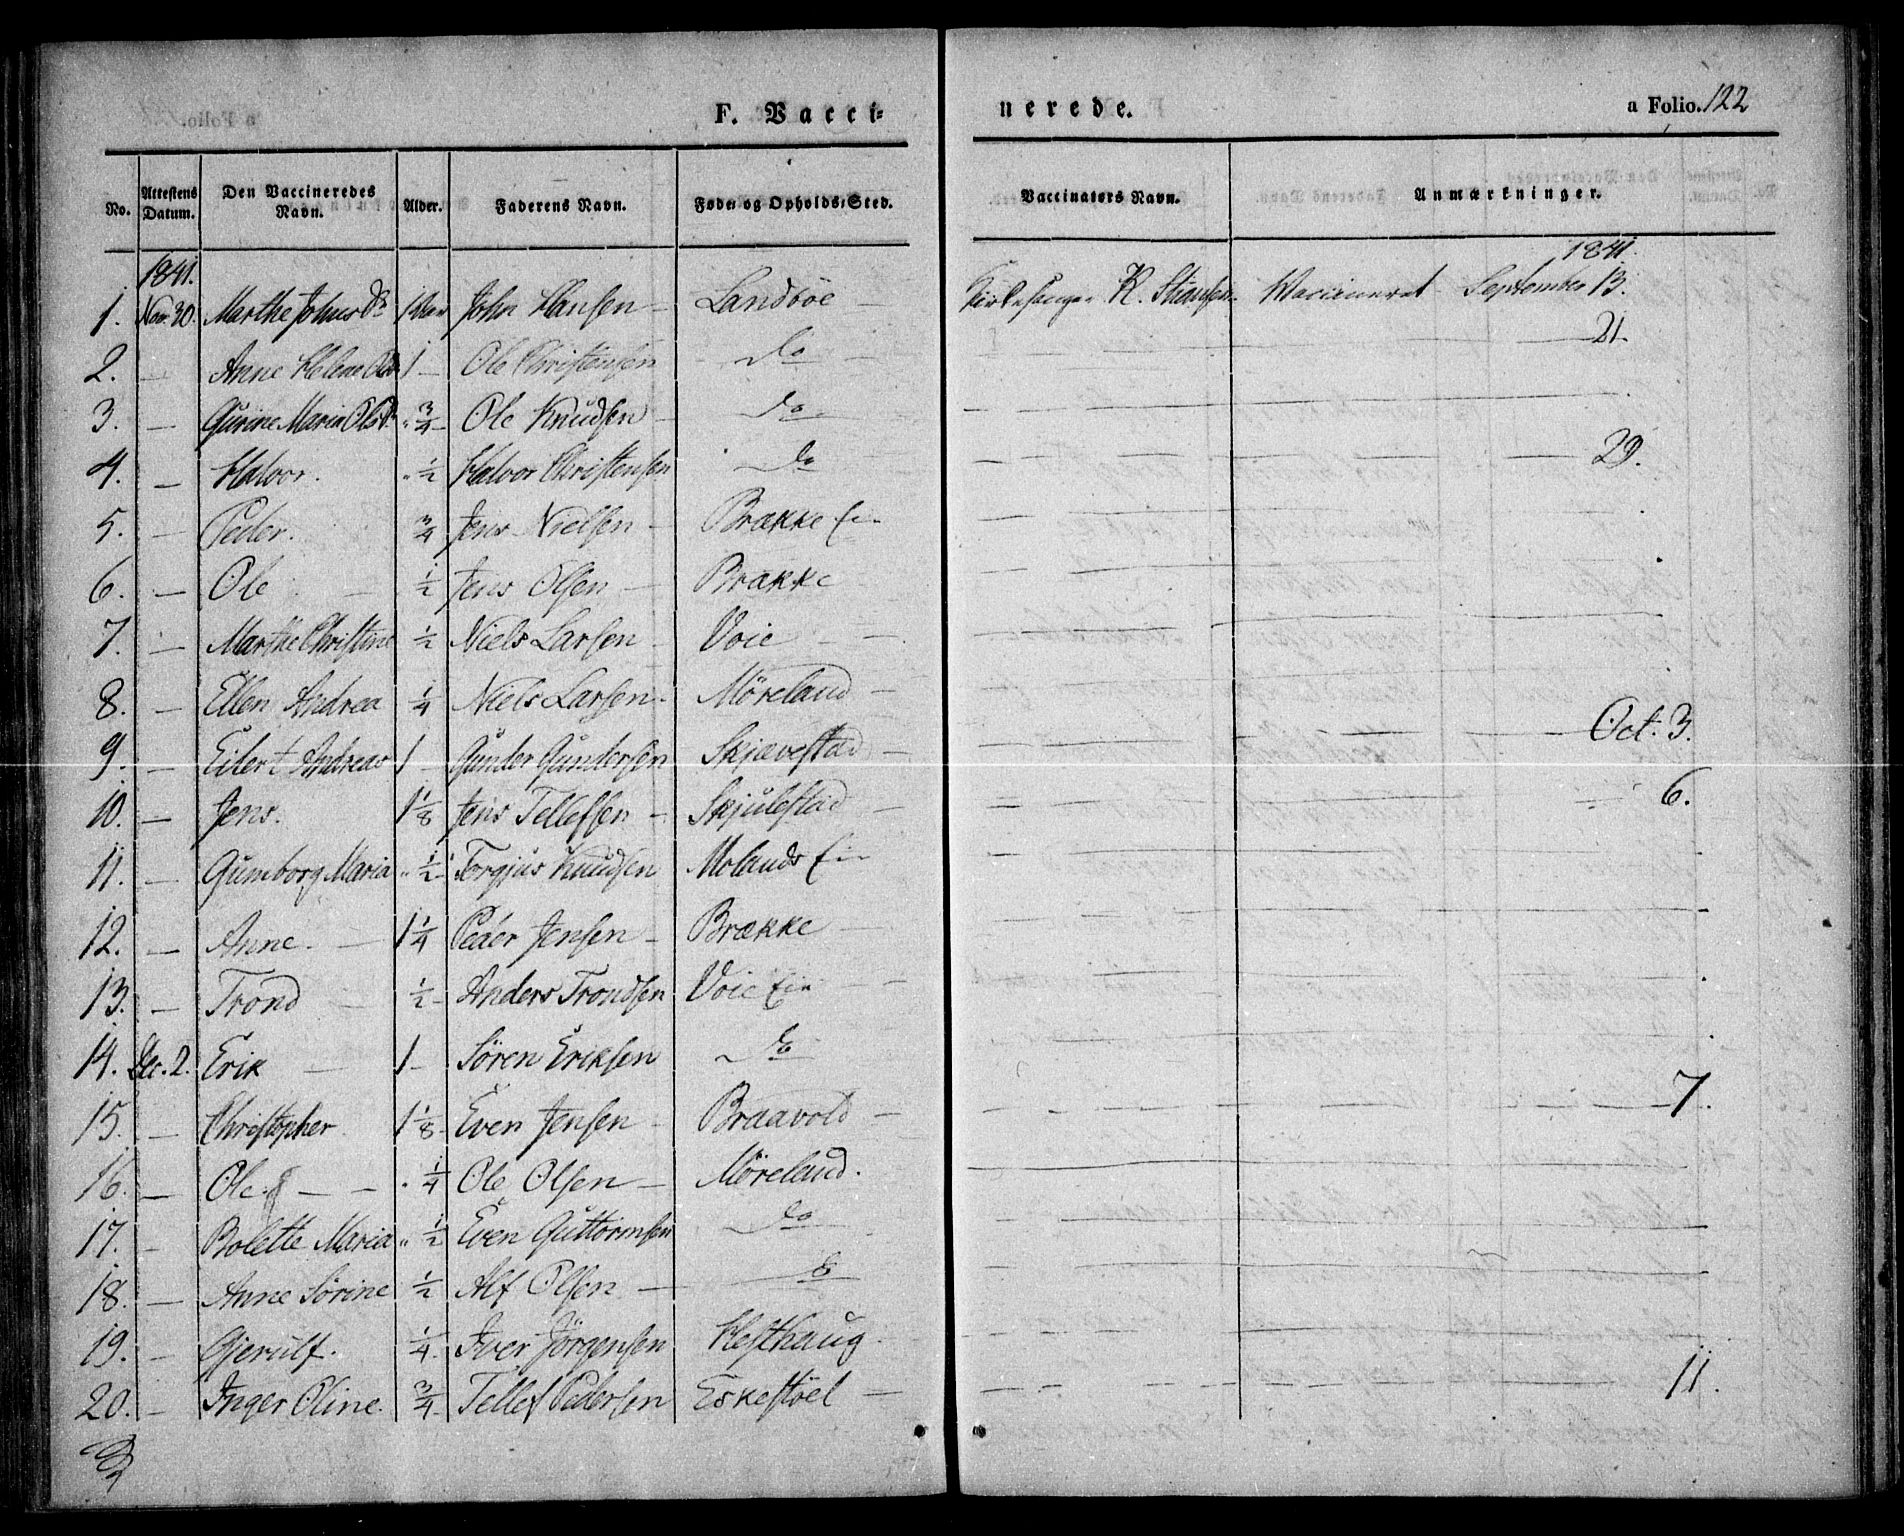 F. Vacci-
nerede.
a Folio. 122
No. Attestens Datum. Den Vaccineredes Navn. Alder. Faderens Navn. Føde- og Opholds-Sted. Vaccinators Navn. Anmærkninger.
1841. 1841.
1. Nov. 30. Marthe Johnsdr 1 Aar John Hansen - Landbøe - Kirkesanger K. Stiansen. Vaccineret September 13.
2. — Anne Helene 1 - Ole Christensen - do - 21.
3. — Gurine Maria Olsdr " 3/4 - Ole Knudsen - do -
4. — Halvor. " 1/2 Halvor Christensen - do 29.
5. — Peder. 3/4 Jens Nielsen - Brække Ei-
6. — Ole 1/2 Jens Olsen — Brække
7. — Marthe Christine 1/2 Niels Larsen - Voie -
8. — Ellen Andrea 1/4 Niels Larsen - Møreland -
9. — Eilert Andreas 1 - Gunder Gundersen Skjævestad - Oct. 3.
10. — Jens. 1 1/8 Jens Tellefsen - Skjulestad - 6.
11. — Gumborg Maria " 1/2 - Torgjus Knudsen Molands Ei-
12. — Anne. — 1 1/4 Peder Jensen - Brække -
13. — Trond 1/2 - Anders Trondsen Voie Ei- -
14. Dec. 2. Erik — 1 - Søren Eriksen - do
15. — Christopher 1 1/8 - Even Jensen - Braavold - 7.
16. — Ole. — - " 1/4 Ole Olsen — Møreland.
17. - Bolette Maria " 1/2 Even Guttormsen - do -
18. — Anne Sørine 1/2 Alf Olsen — - do -
19. - Gjerulf. 1/4 - Iver Jörgensen Hesthaug -
20. - Inger Oline. 3/4 - Tellef Pedersen Eskestøel — 11.